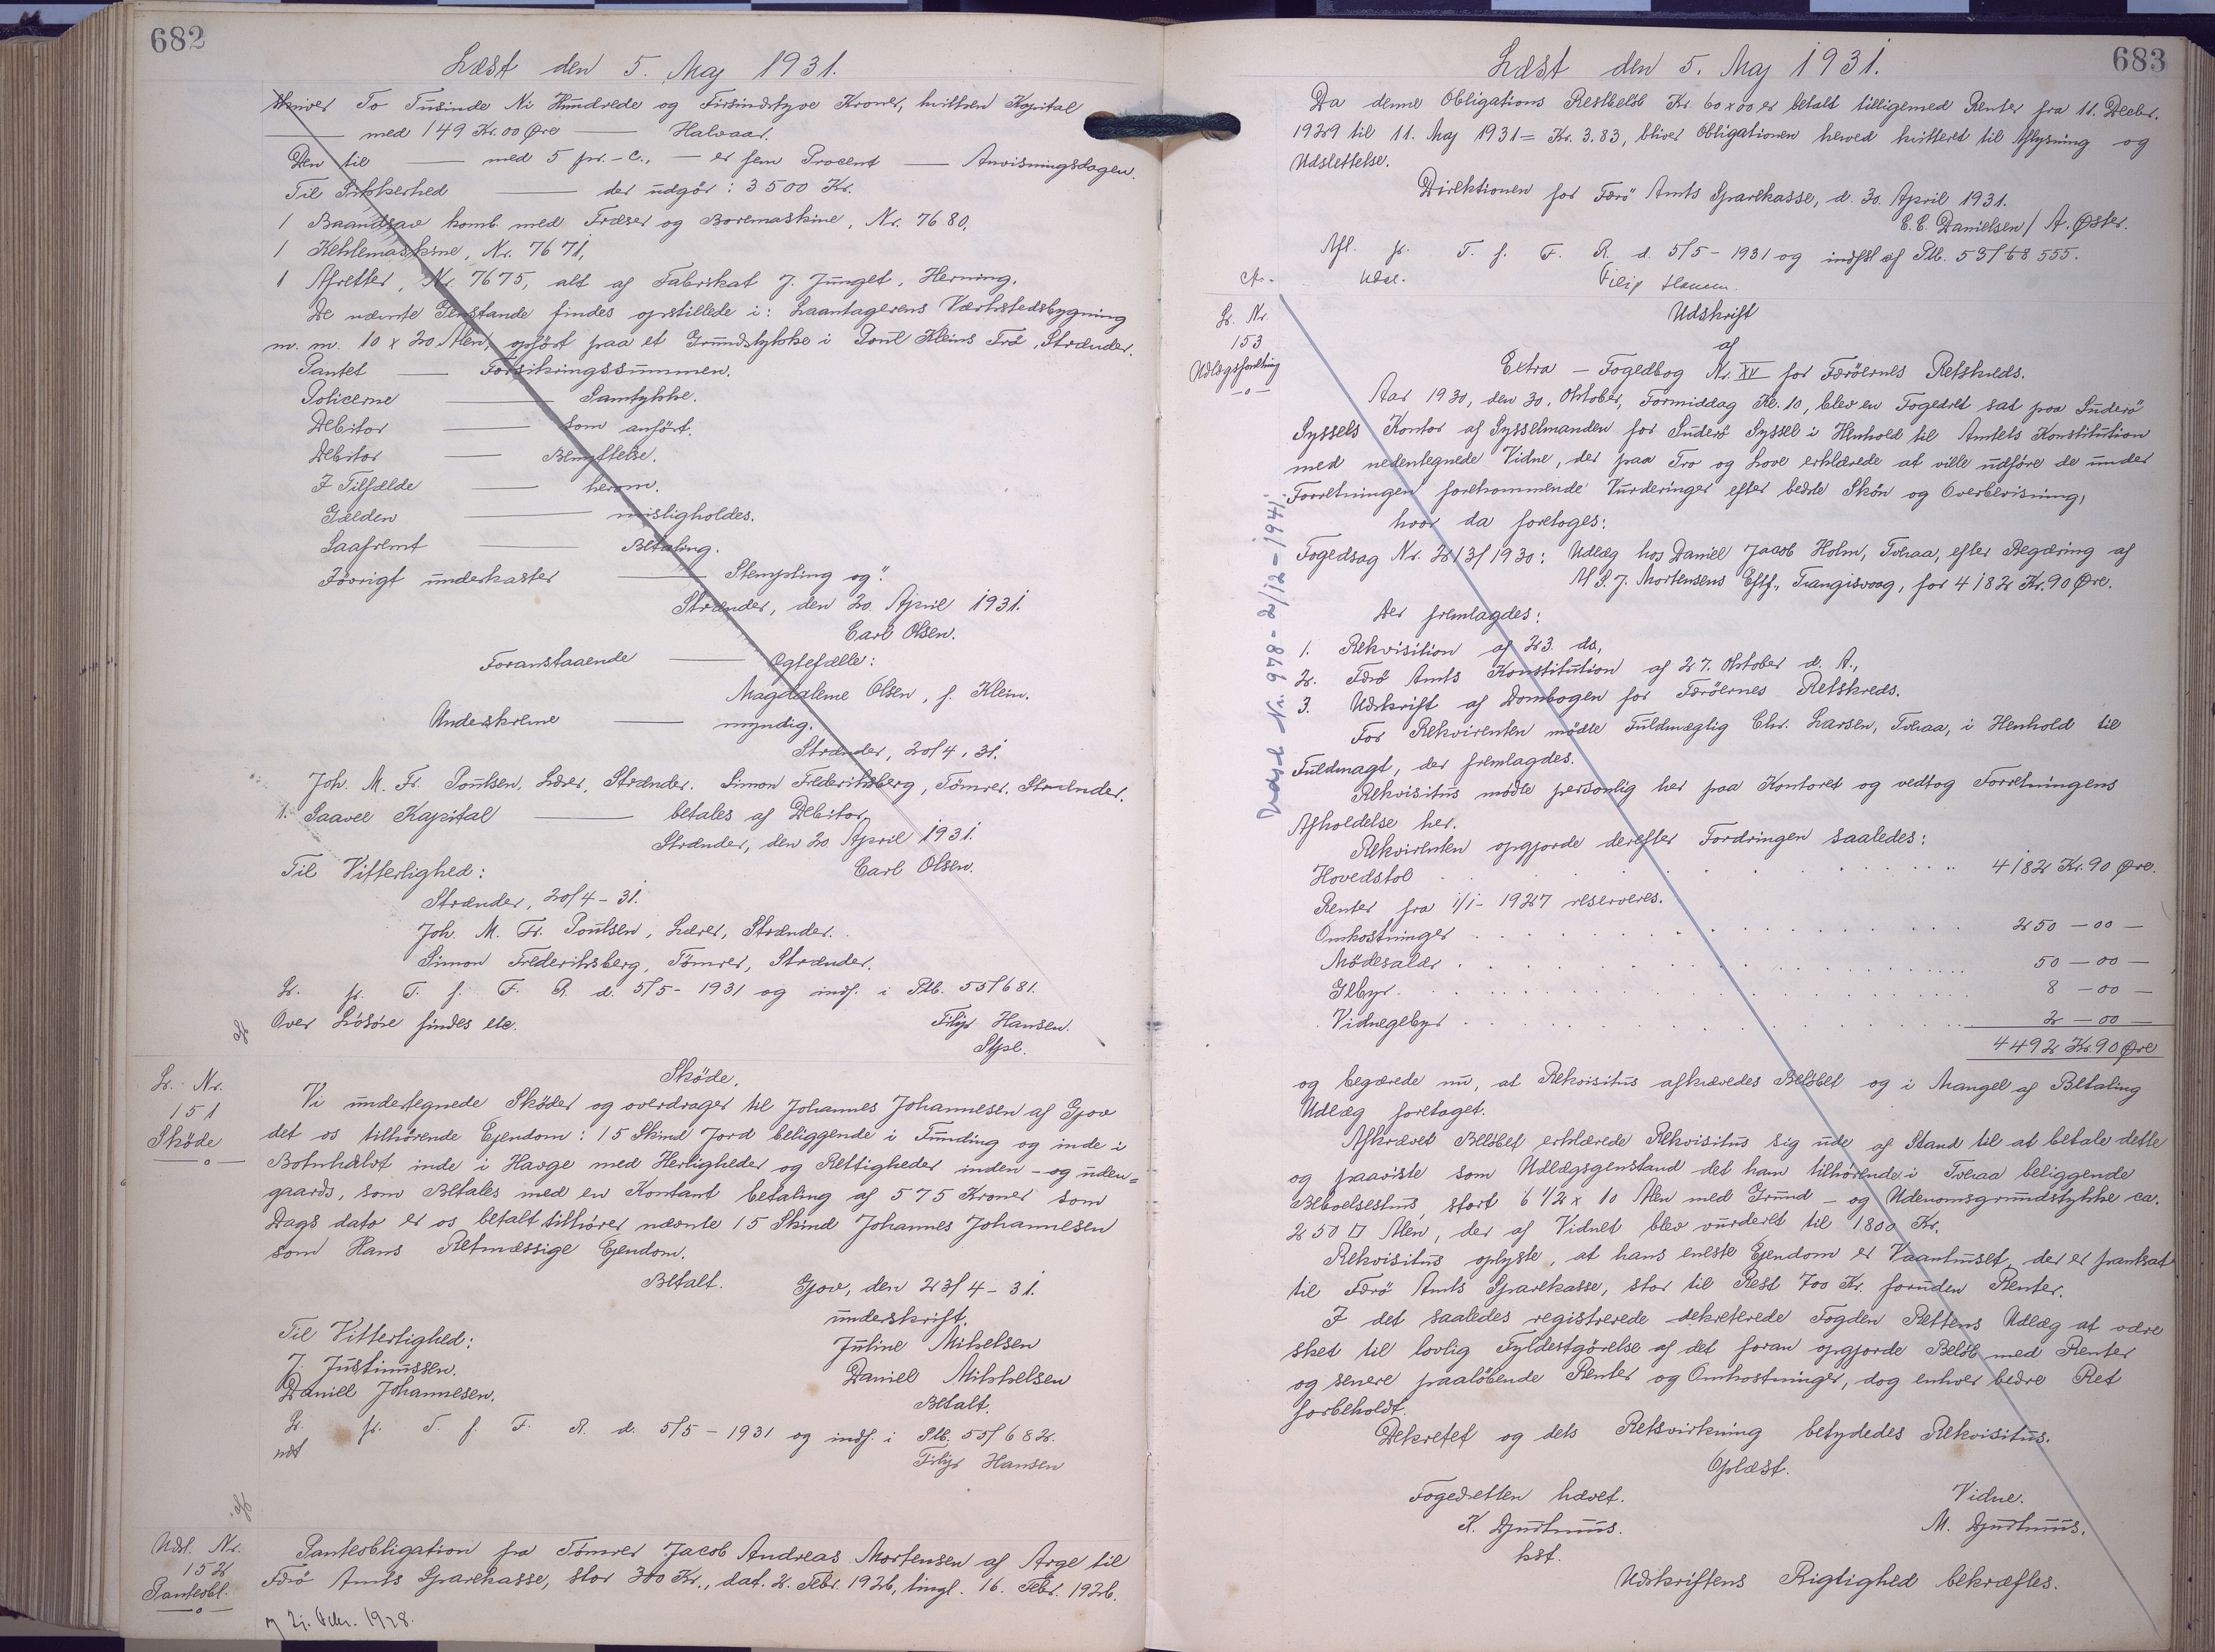 682
Læst den 5. Maj 1931.
skriver To Tusinde Ni Hundrede og Firsindstyve Kroner, hvilken Kapital
—— med 149 Kr. 00 Øre —— Halvaar.
Den til —— med 5 pr. - c., — er fem Procent —— Anvisningsdagen.
Til Sikkerhed —— der udgör: 3500 Kr.
1 Baandsav komb. med Fræser og Boremaskine, Nr. 7680,
1 Kehlemaskine, Nr. 7671,
1 Afretter, Nr. 7675, alt af Fabrikat J. Junget, Herning.
De nævnte Genstande findes opstillede i: Laantagerens Værkstedsbygning
m. m. 10 x 20 Alen, opført paa et Grundstykke i Poul Kleins Trö, Strænder.
Pantet —— Forsikringssummen.
Policerne —— Samtykke.
Debitor —— som anført.
Debitor —— Benyttelse.
I Tilfælde —— herom.
Gælden —— misligholdes.
Saafremt —— Betaling.
Iövrigt underkaster —— Stempling og".
Strænder, den 20. April 1931.
Carl Olsen.
Foranstaaende —— Ægtefælle:
Magdalene Olsen, f. Klein.
Underskrevne —— myndig.
Strænder, 20/4, 31.
Joh. M. Fr. Poulsen, Lærer, Strænder. Simon Frederiksberg, Tömrer, Strænder.
1. Saavel Kapital —— betales af Debitor.
Strænder, den 20. April 1931.
Carl Olsen.
Til Vitterlighed:
Strænder, 20/4 - 31.
Joh. M. Fr. Poulsen, Lærer, Strænder.
Simon Frederiksberg, Tömrer, Strænder.
Lr. fr. T. f. F. R. d. 5/5 - 1931 og indf. i Ptb. 55/681.
Over Lösöre findes etc.
Filip Hansen.
Stpl.
Lr. Nr.
151
Sköde
Sköde.
Vi undertegnede Sköder og overdrager til Johannes Johannesen af Gjov
det os tilhörende Ejendom: 15 Skind Jord beliggende i Funding og inde i
Botnhálvt inde i Havge med Herligheder og Rettigheder inden - og uden=
gaards, som Betales med en Kontant betaling af 575 Kroner som
Dags dato er os betalt tilhörer nævnte 15 Skind Johannes Johannesen
som Hans Retmæssige Ejendom.
Betalt. Gjov, den 23/4 - 31.
underskrift.
Til Vitterlighed:
Juline Mikelsen
J. Justinussen.
Daniel Mikkelsen
Daniel Johannesen.
Betalt.
Lr. fr. T. f. F. R. d. 5/5 - 1931 og indf. i Ptb. 55/682.
ndt
Filip Hansen
Udsl. Nr.
152
Panteobl.
Panteobligation fra Tömrer Jacob Andreas Mortensen af Arge til
Færö Amts Sparekasse, stor 300 Kr., dat. 2. Febr. 1926, tingl. 16. Febr. 1926.
683
Læst den 5. Maj 1931.
Da denne Obligations Restbelöb Kr. 60 x 00 er betalt tilligemed Renter fra 11. Decbr.
1929 til 11. Maj 1931 = Kr. 3.83, bliver Obligationen herved kvitteret til Aflysning og
Udslettelse.
Direktionen for Færö Amts Sparekasse, d. 30. April 1931.
C. C. Danielsen / A. Öster.
Afl. fr. T. f. F. R. d. 5/5 - 1931 og indfst af Ptb. 53/68 555.
Udsl. Filip Hansen.
Lr. Nr.
153
Udlægsforretning
Udskrift
af
Extra - Fogedbog Nr. XV for Færöernes Retskreds.
Aar 1930, den 30. Oktober, Formiddag Kl. 10, blev en Fogedret sat paa Suderö
Syssels Kontor af Sysselmanden for Suderö Syssel i Henhold til Amtets Konstitution
med nedentegnede Vidne, der paa Tro og Love erklærede at ville udföre de under
Forretningen forekommende Vurderinger efter bedste Skön og Overbevisning,
hvor da foretoges:
Fogedsag Nr. 213/1930: Udlæg hos Daniel Jacob Holm, Tveraa, efter Begæring af
Af S. J. Mortensens Eftf., Trangisvaag, for 4182 Kr. 90 Øre.
Der fremlagdes:
1. Rekvisition af 23. ds,
2. Færö Amts Konstitution af 27. Oktober d. A.,
3. Udskrift af Dombogen for Færöernes Retskreds.
For Rekvirenten mödte Fuldmægtig Chr. Larsen, Tveraa, i Henhold til
Fuldmagt, der fremlagdes.
Rekvisitus mödte personlig her paa Kontoret og vedtog Forretningens
Afholdelse her.
Rekvirenten opgjorde derefter Fordringen saaledes:
Hovedstol 4182 Kr. 90 Øre.
Renter fra 1/1 - 1927 reserveres.
Omkostninger 250 - 00 -
Mödesalær 50 - 00 -
Gebyr 8 - 00 -
Vidnegebyr 2 - 00 -
4492 Kr. 90 Øre
og begærede nu, at Rekvisitus afkrævedes Belöbet og i Mangel af Betaling
Udlæg foretaget.
Afkrævet Belöbet erklærede Rekvisitus sig ude af Stand til at betale dette
og paaviste som Udlægsgenstand det ham tilhörende i Tveraa beliggende
Beboelseshus, stort 6 1/2 x 10 Alen med Grund - og Udenomsgrundstykke ca.
250 □ Alen, der af Vidnet blev vurderet til 1800 Kr.
Rekvisitus oplyste, at hans eneste Ejendom er Vaanhuset, der er pantsat
til Færö Amts Sparekasse, stor til Rest 700 Kr. foruden Renter.
I det saaledes registrerede dekreterede Fogden Rettens Udlæg at være
sket til lovlig Fyldestgörelse af det foran opgjorde Belöb med Renter
og senere paalöbende Renter og Omkostninger, dog enhver bedre Ret
forbeholdt.
Dekretet og dets Retsvirkning betydedes Rekvisitus.
Oplæst.
Fogedretten hævet. Vidne.
K. Djurhuus. M. Djurhuus.
kst.
Udskriftens Rigtighed bekræftes.